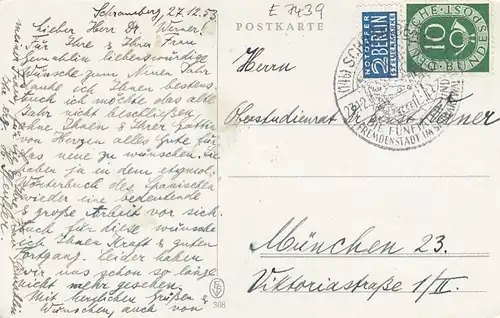 Schramberg, 27.12.53
Lieber Herr Dr. Werner!
Für Ihre & Ihrer Frau
Gemahlin liebenswürdige
Wünsche zum Neuen Jahr
danke ich Ihnen bestens.
Auch ich möchte das alte
Jahr nicht beschließen
ohne Ihnen & Ihrer Gattin
von Herzen alles Gute für
das neue zu wünschen. Sie
haben ja in dem etymol.
Wörterbuch des Spanischen
wieder eine bedeutende
& große Arbeit vor sich.
Auch für diese wünsche
ich Ihnen Kraft & guten
Fortgang. Leider haben
wir uns schon so lange
nicht mehr gesehen.
Mit herzlichen Grüßen &
Wünschen, auch von
meiner
E 7439
POSTKARTE
NOTOPFER
2 BERLIN
STEUERMARKE
DEUTSCHE BUNDESPOST
10
(14b) SCH
FÜNF
FREUDENSTADT IM
Herrn
Oberstudienrat Dr. Ernst Werner
München 23.
Viktoriastraße 1/II.
308